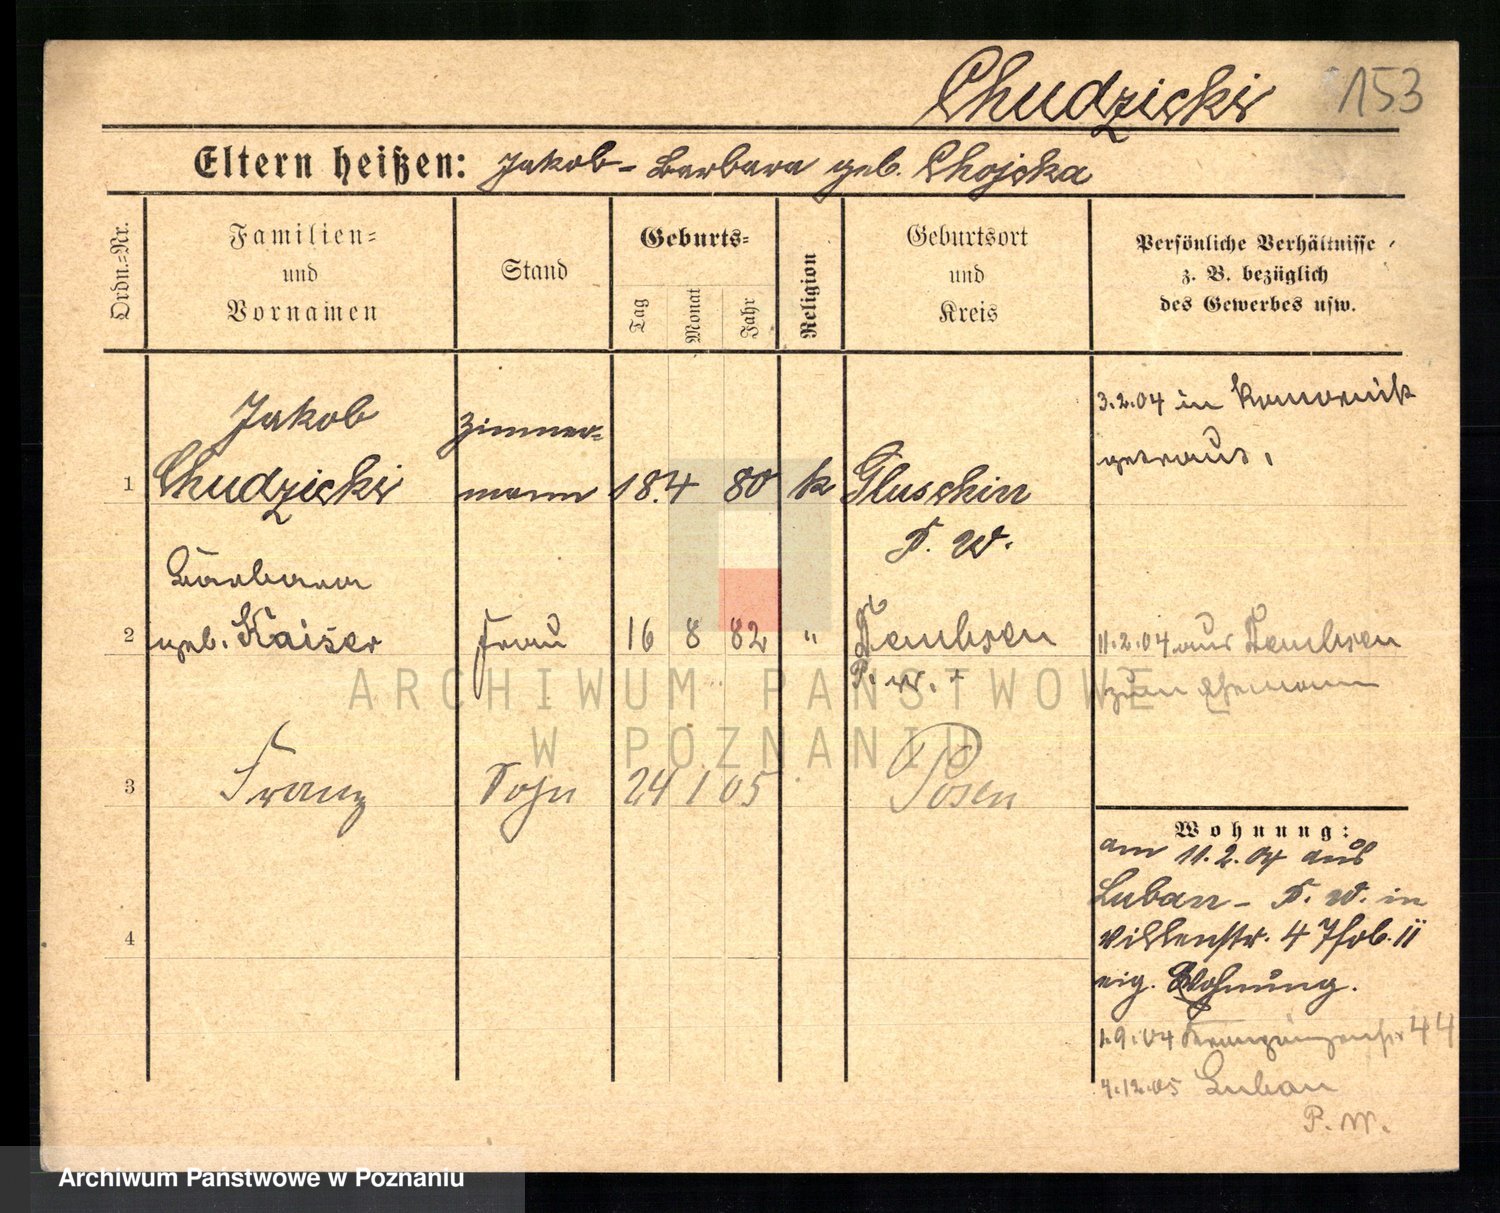 Chudzicki 153
Eltern heißen: Jakob - Barbara geb. Chojcka
Ordn.-Nr.
Familien-
und
Vornamen
Stand
Geburts-
Tag
Monat
Jahr
Religion
Geburtsort
und
Kreis
Persönliche Verhältnisse
z. B. bezüglich
des Gewerbes usw.
Jakob
Zimmer-
3.2.04 in Komornik
getraut.
1 Chudzicki mann 18. 4 80 k Gluschin
P. W.
Barbara
2 geb. Kaiser Frau 16 8 82 " Dembsen
P. W.
11.2.04 aus Dembsen
zum Ehemann
3 Franz Sohn 24 1 05 Posen
4
Wohnung:
am 11.2.04 aus
Luban - P. W. in
4 II
eig. Wohnung.
1.9.04 44
4.12.05 Luban
P. W.
ARCHIWUM PAŃSTWOWE
W POZNANIU
Archiwum Państwowe w Poznaniu